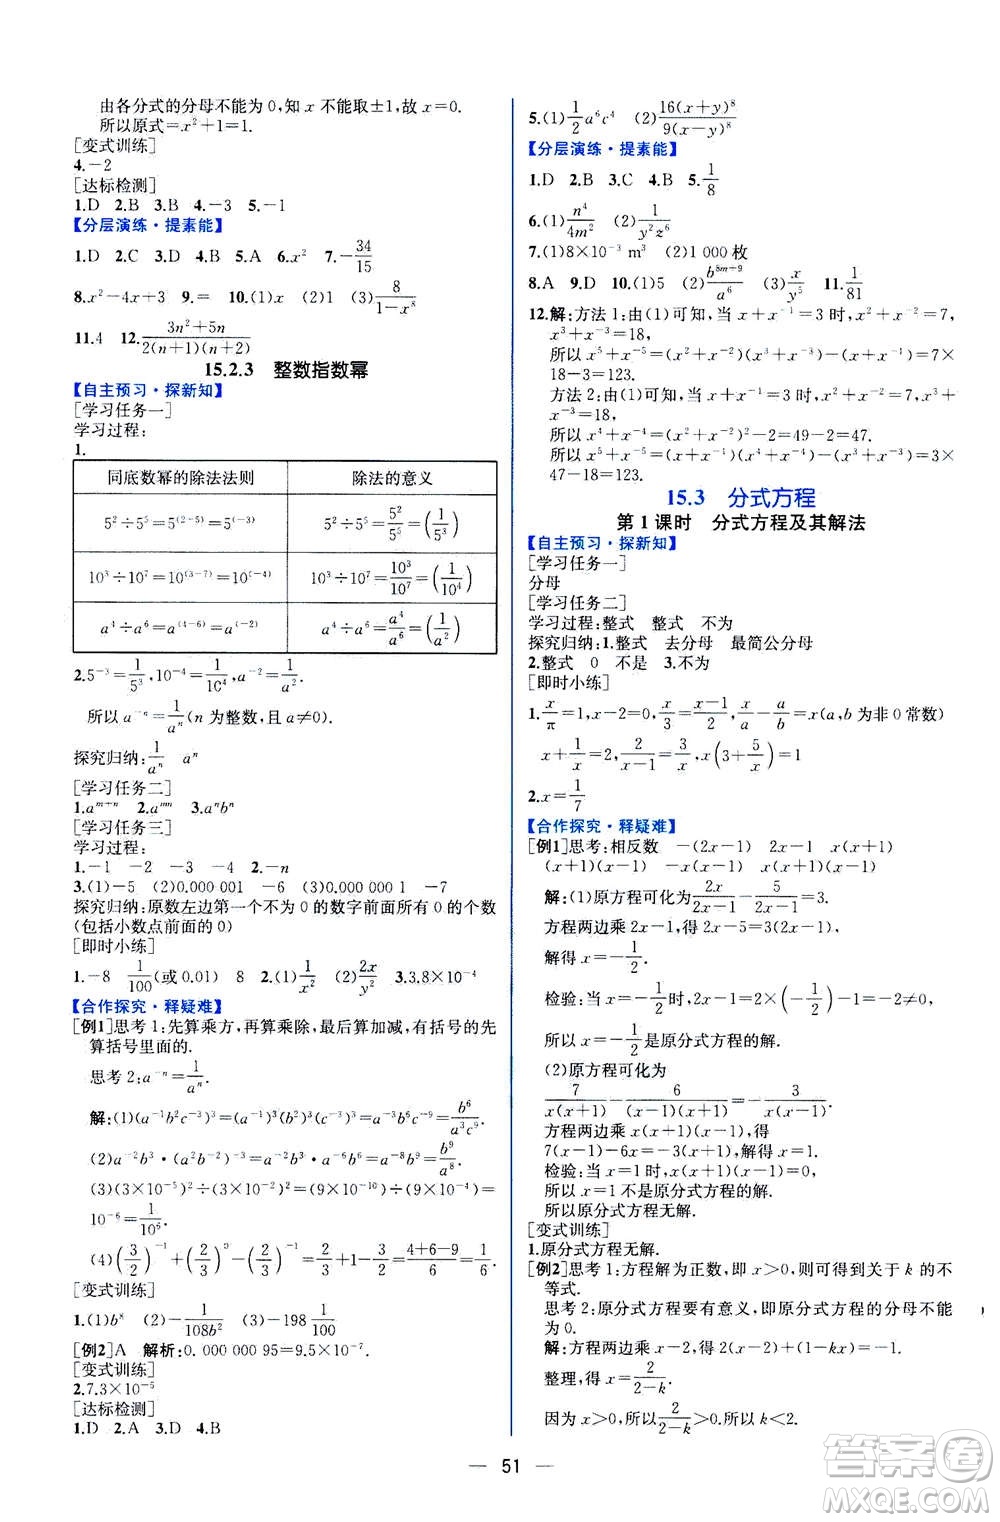 由各分式的分母不能为0,知 x 不能取±1,故 x=0.
所以原式=x²+1=1.
[变式训练]
4.-2
[达标检测]
1.D 2.B 3.B 4.-3 5.-1
【分层演练·提素能】
1.D 2.C 3.D 4.B 5.A 6.x² 7.-34/15
8.x²-4x+3 9.= 10.(1)x (2)1 (3)8/(1-x⁸)
11.4 12.(3n²+5n)/(2(n+1)(n+2))
15.2.3 整数指数幂
【自主预习·探新知】
[学习任务一]
学习过程:
1.
同底数幂的除法法则 除法的意义
5²÷5⁵=5^(2-5)=5^(-3) 5²÷5⁵=5²/5⁵=(1/5³)
10³÷10⁷=10^(3-7)=10^(-4) 10³÷10⁷=10³/10⁷=(1/10⁴)
a⁴÷a⁶=a^(4-6)=a^(-2) a⁴÷a⁶=a⁴/a⁶=(1/a²)
2.5⁻³=1/5³,10⁻⁴=1/10⁴,a⁻²=1/a².
所以 a⁻ⁿ=1/aⁿ(n 为整数,且 a≠0).
探究归纳:1/aⁿ aⁿ
[学习任务二]
1.a^(m+n) 2.a^(mn) 3.aⁿbⁿ
[学习任务三]
学习过程:
1.-1 -2 -3 -4 2.-n
3.(1)-5 (2)0.000 001 -6 (3)0.000 000 1 -7
探究归纳:原数左边第一个不为 0 的数字前面所有 0 的个数
(包括小数点前面的 0)
[即时小练]
1.-8 1/100(或 0.01) 8 2.(1)1/x² (2)2x/y² 3.3.8×10⁻⁴
【合作探究·释疑难】
[例1]思考 1:先算乘方,再算乘除,最后算加减,有括号的先
算括号里面的.
思考 2:a⁻ⁿ=1/aⁿ.
解:(1)(a⁻¹b²c⁻³)³=(a⁻¹)³(b²)³(c⁻³)³=a⁻³b⁶c⁻⁹=b⁶/(a³c⁹).
(2)a⁻²b³·(a²b⁻²)⁻³=a⁻²b³·a⁻⁶b⁶=a⁻⁸b⁹=b⁹/a⁸.
(3)(3×10⁻⁵)²÷(3×10⁻²)²=(9×10⁻¹⁰)÷(9×10⁻⁴)=
10⁻⁶=1/10⁶.
(4)(3/2)⁻¹+(2/3)⁰-(2/3)⁻¹=2/3+1-3/2=(4+6-9)/6=1/6.
[变式训练]
1.(1)b⁸ (2)-1/(108b²) (3)-198 1/100
[例2]A 解析:0.000 000 95=9.5×10⁻⁷.
[变式训练]
2.7.3×10⁻⁵
[达标检测]
1.D 2.A 3.D 4.B
5.(1)1/2 a⁶c⁴ (2)16(x+y)⁸/9(x-y)⁸
【分层演练·提素能】
1.D 2.B 3.C 4.B 5.1/8
6.(1)n⁴/4m² (2)1/(y²z⁶)
7.(1)8×10⁻³ m³ (2)1 000 枚
8.A 9.A 10.(1)5 (2)b^(8m+9)/a⁶ (3)x/y⁵ 11.1/81
12.解:方法 1:由(1)可知,当 x+x⁻¹=3 时,x²+x⁻²=7,
x³+x⁻³=18,
所以 x⁵+x⁻⁵=(x²+x⁻²)(x³+x⁻³)-(x+x⁻¹)=7×
18-3=123.
方法 2:由(1)可知,当 x+x⁻¹=3 时,x²+x⁻²=7,x³+
x⁻³=18,
所以 x⁴+x⁻⁴=(x²+x⁻²)²-2=49-2=47.
所以 x⁵+x⁻⁵=(x+x⁻¹)(x⁴+x⁻⁴)-(x³+x⁻³)=3×
47-18=123.
15.3 分式方程
第 1 课时 分式方程及其解法
【自主预习·探新知】
[学习任务一]
分母
[学习任务二]
学习过程:整式 整式 不为
探究归纳:1.整式 去分母 最简公分母
2.整式 0 不是 3.不为
[即时小练]
1.x/π=1,x-2=0,x/3=(x-1)/2,x/a-a/b=x(a,b 为非 0 常数)
x+1/x=2,x(3+5/x)=-1
2.x=1/7
【合作探究·释疑难】
[例1]思考:相反数 -(2x-1) 2x-1 x(x+1)
(x+1)(x-1) -x(x-1) x(x+1)(x-1)
解:(1)原方程可化为2x/(2x-1)-5/(2x-1)=3.
方程两边乘 2x-1,得 2x-5=3(2x-1),
解得 x=-1/2.
检验:当 x=-1/2时,2x-1=2×(-1/2)-1=-2≠0,
所以 x=-1/2是原分式方程的解.
(2)原方程可化为
7/(x(x+1))-6/((x-1)(x+1))=-3/(x(x-1)).
方程两边乘 x(x+1)(x-1),得
7(x-1)-6x=-3(x+1),解得 x=1.
检验:当 x=1 时,x(x+1)(x-1)=0,
所以 x=1 不是原分式方程的解.
所以原分式方程无解.
[变式训练]
1.原分式方程无解.
[例2]思考 1:方程解为正数,即 x>0,可得到关于 k 的不
等式.
思考 2:原分式方程要有意义,即原分式方程的分母不能
为 0.
解:方程两边乘 x-2,得 2(x-2)+(1-kx)=-1.
整理,得 x=2/(2-k).
因为 x>0,所以2/(2-k)>0.所以 k<2.
— 51 —
答案圈
MXQE.COM